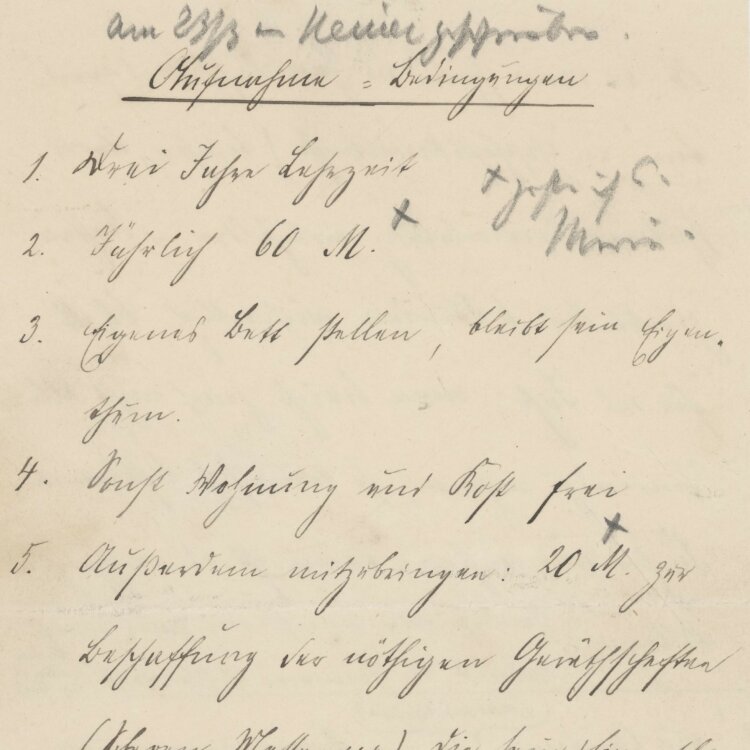 am
geschrieben.
Aufnahme = Bedingungen
1. Drei Jahre Lehrzeit
2. Jährlich 60 M. +
3. Eigenes Bett stellen, bleibt sein Eigen-
thum.
4. Sonst Wohnung und Kost frei
5. Außerdem mitzubringen: 20 M. + zur
Beschaffung der nöthigen Geräthschaften
(Scheren, Messer